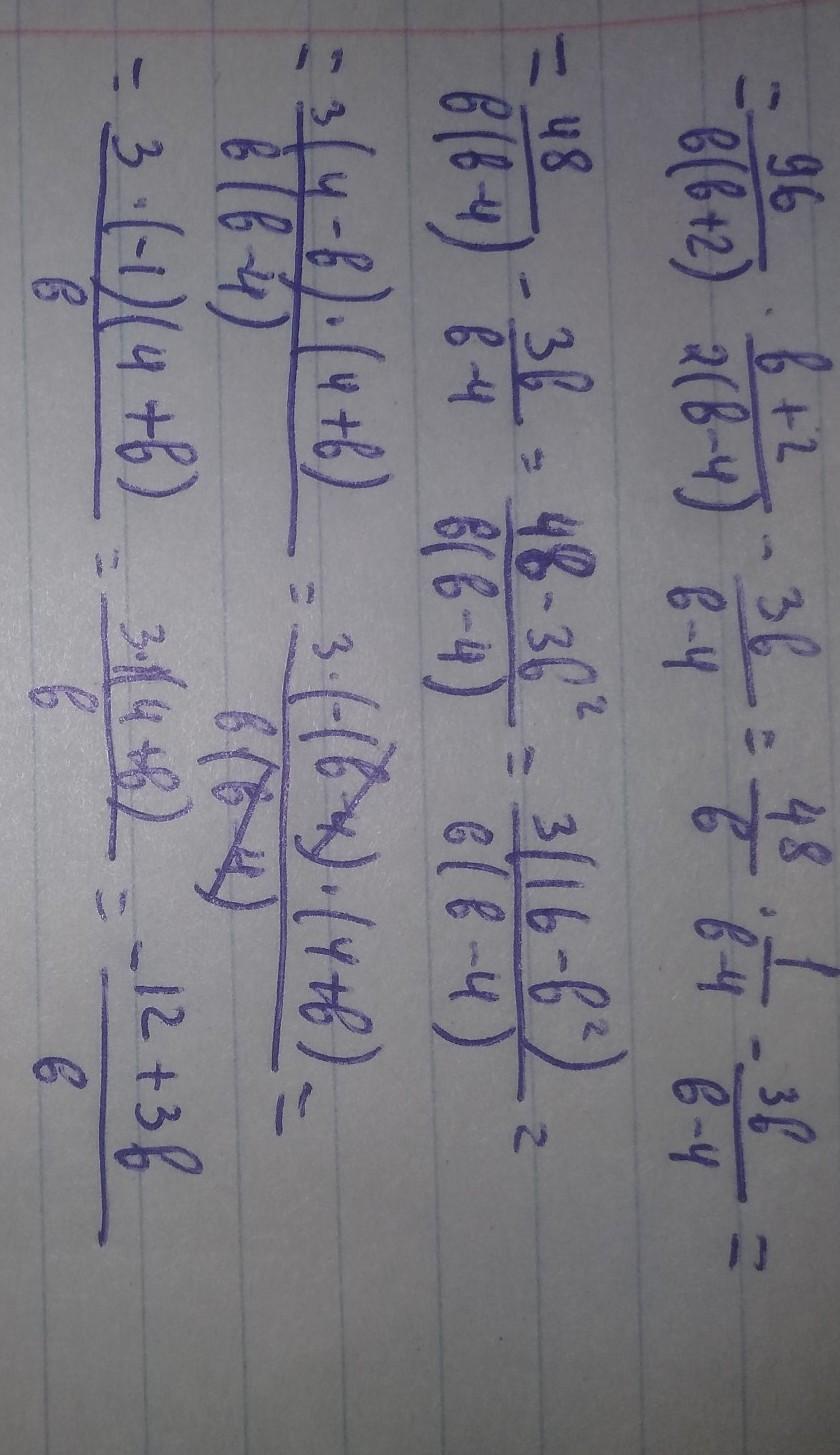 = 96/в(в+2) · в+2/2(в-4) - 3в/в-4 = 48/в · 1/в-4 - 3в/в-4 =
= 48/в(в-4) - 3в/в-4 = 48-3в²/в(в-4) = 3(16-в²)/в(в-4) =
= 3(4-в)·(4+в)/в(в-4) = 3·(-(в-4)·(4+в)/в(в-4) =
= 3·(-1)(4+в)/в = 3·(4+в)/в = -12+3в/в